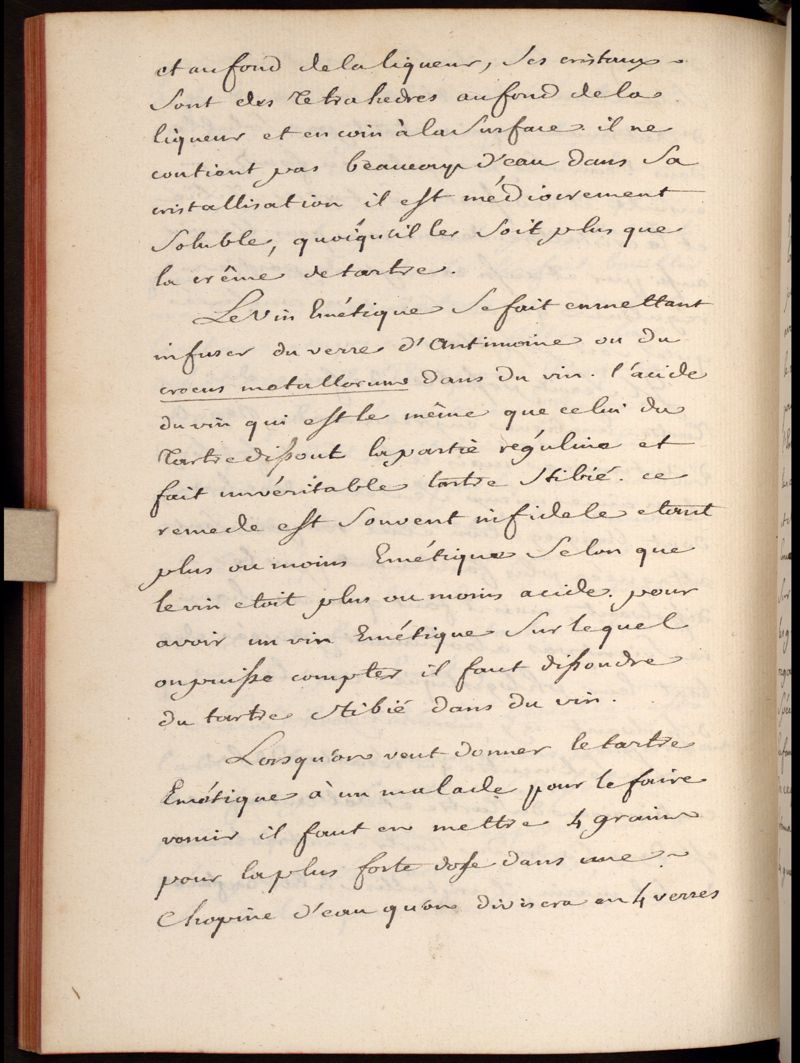 et au fond de la liqueur, Ses cristaux
Sont des Tetrahedres au fond de la
liqueur et en coin à la Surface. il ne
contient pas beaucoup d'eau dans Sa
cristallisation il est médiocrement
Soluble, quoiqu'il les Soit plus que
la crême de tartre.
Le Vin Emétique Se fait en mettant
infuser du verre d'Antimoine ou du
crocus metallorum dans du vin. l'acide
du vin qui est le même que celui du
Tartre dissout la partie réguline et
fait un véritable tartre Stibié. ce
remede est Souvent infidele etant
plus ou moins Emétique Selon que
le vin etoit plus ou moins acide. pour
avoir un vin Emétique Sur lequel
on puisse compter il faut dissoudre
du tartre Stibié dans du vin.
Lorsqu'on veut donner le tartre
Emétique à un malade pour le faire
vomir il faut en mettre 4 grains
pour la plus forte dose dans une
Chopine d'eau qu'on divisera en 4 verres